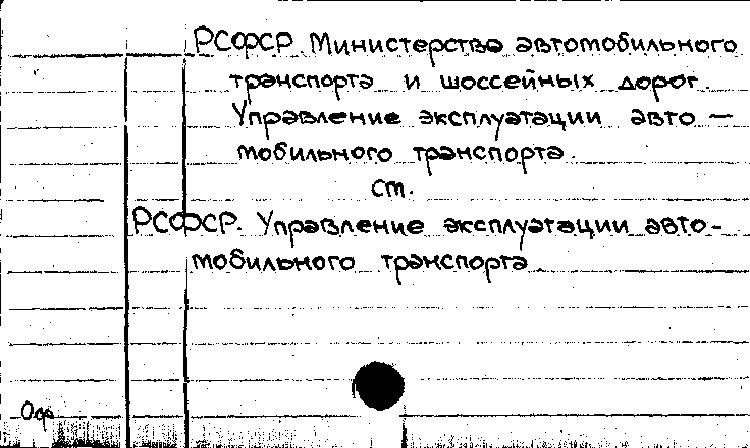 РСФСР. Министерство автомобильного
транспорта и шоссейных дорог.
Управление эксплуатации авто —
мобильного транспорта.
ст.
РСФСР. Управление эксплуатации авто-
мобильного транспорта.